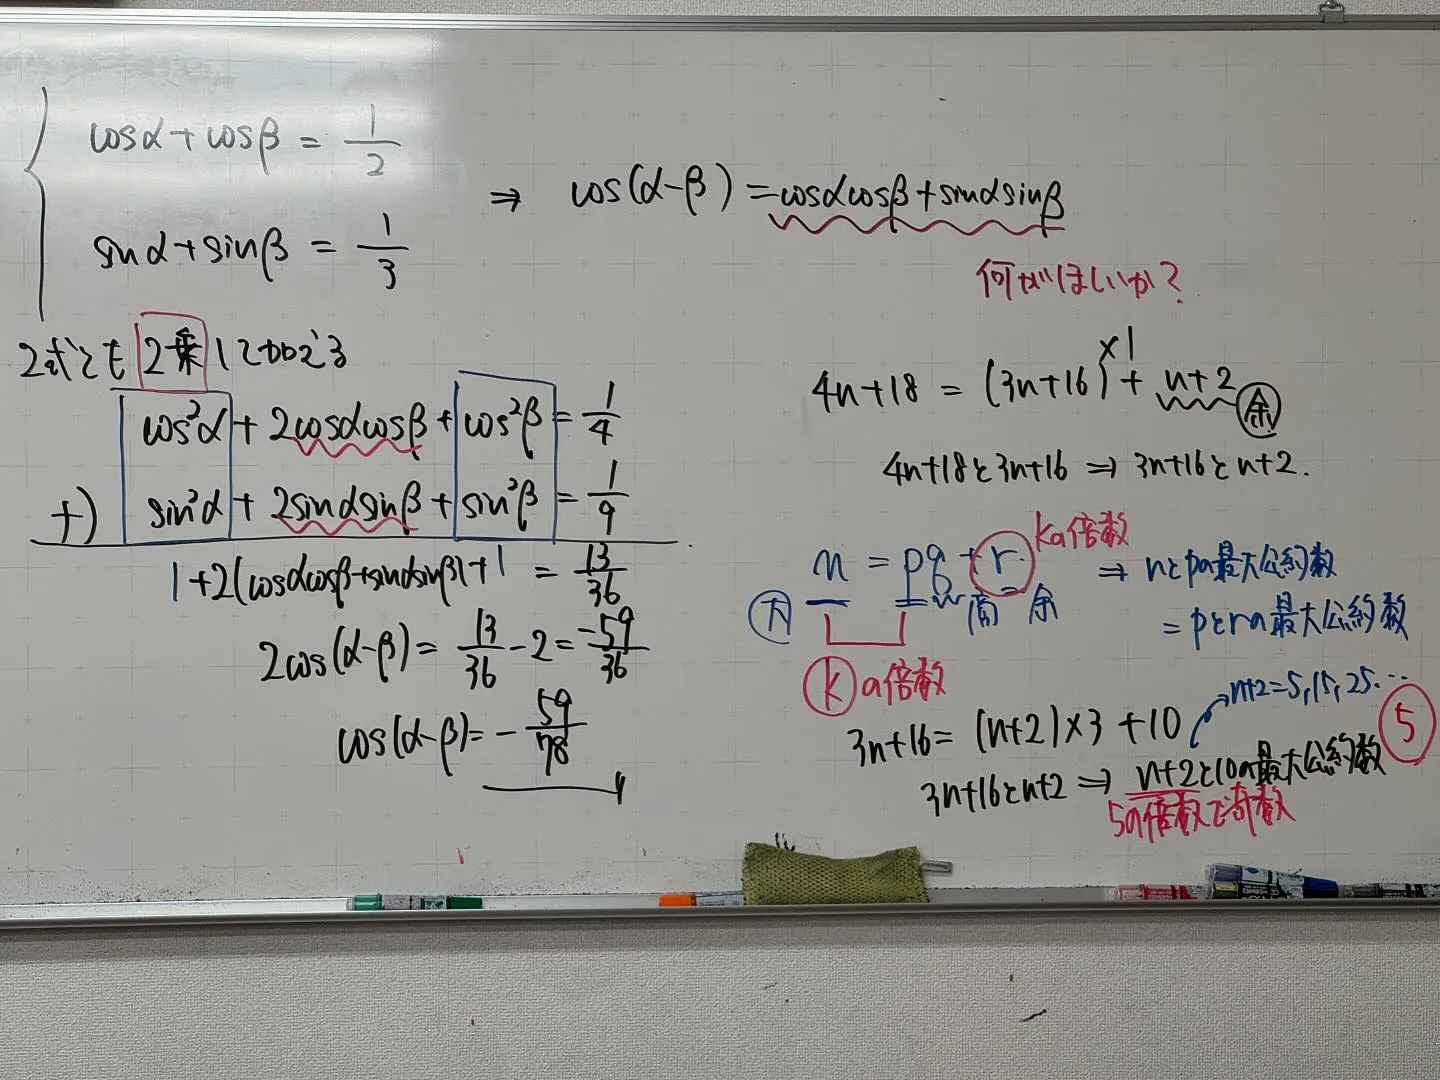 cosα + cosβ = 1/2
sinα + sinβ = 1/3
⇒ cos(α-β) = cosαcosβ + sinαsinβ
何がほしいか?
2式とも2乗して加える
cos²α + 2cosαcosβ + cos²β = 1/4
+) sin²α + 2sinαsinβ + sin²β = 1/9
1 + 2(cosαcosβ + sinαsinβ) + 1 = 13/36
2cos(α-β) = 13/36 - 2 = -59/36
cos(α-β) = -59/78
4n+18 = (3n+16)×1 + n+2 余
4n+18と3n+16 ⇒ 3n+16とn+2.
n = pq + r kの倍数
大 商 余
kの倍数
⇒ nとpの最大公約数
= pとrの最大公約数
3n+16 = (n+2)×3 + 10
n+2=5,15,25…
3n+16とn+2 ⇒ n+2と10の最大公約数 5
5の倍数で奇数